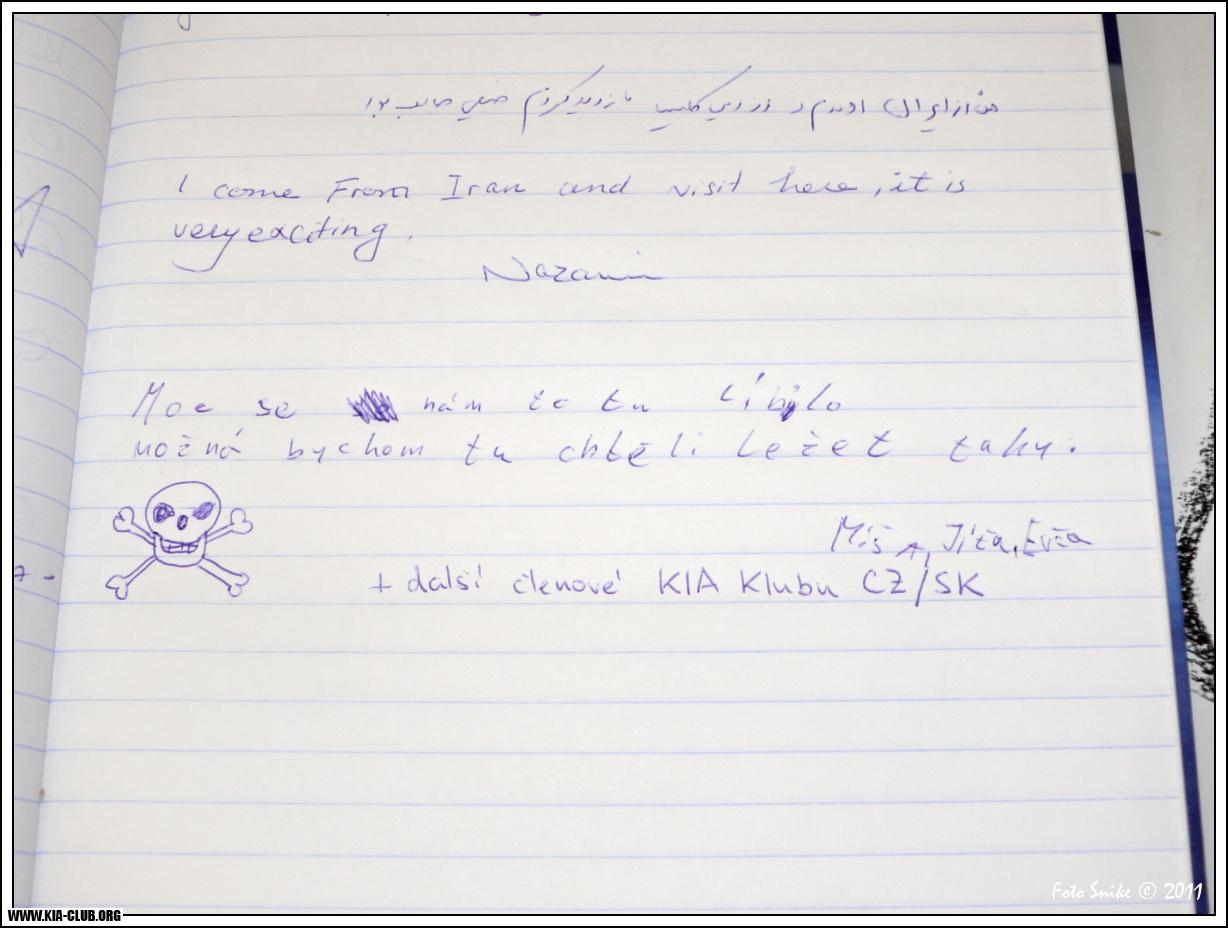 من از ایران اومدم و از این کلیسا بازدید کردم خیلی جالب بود
I come From Iran and visit here, it is
very exciting.
Nazanin
Moc se nám to tu líbilo
možná bychom tu chtěli ležet taky.
Míša, Jíťa, Evča
+ další členové KIA Klubu CZ/SK
7-
Foto Snike © 2011
WWW.KIA-CLUB.ORG